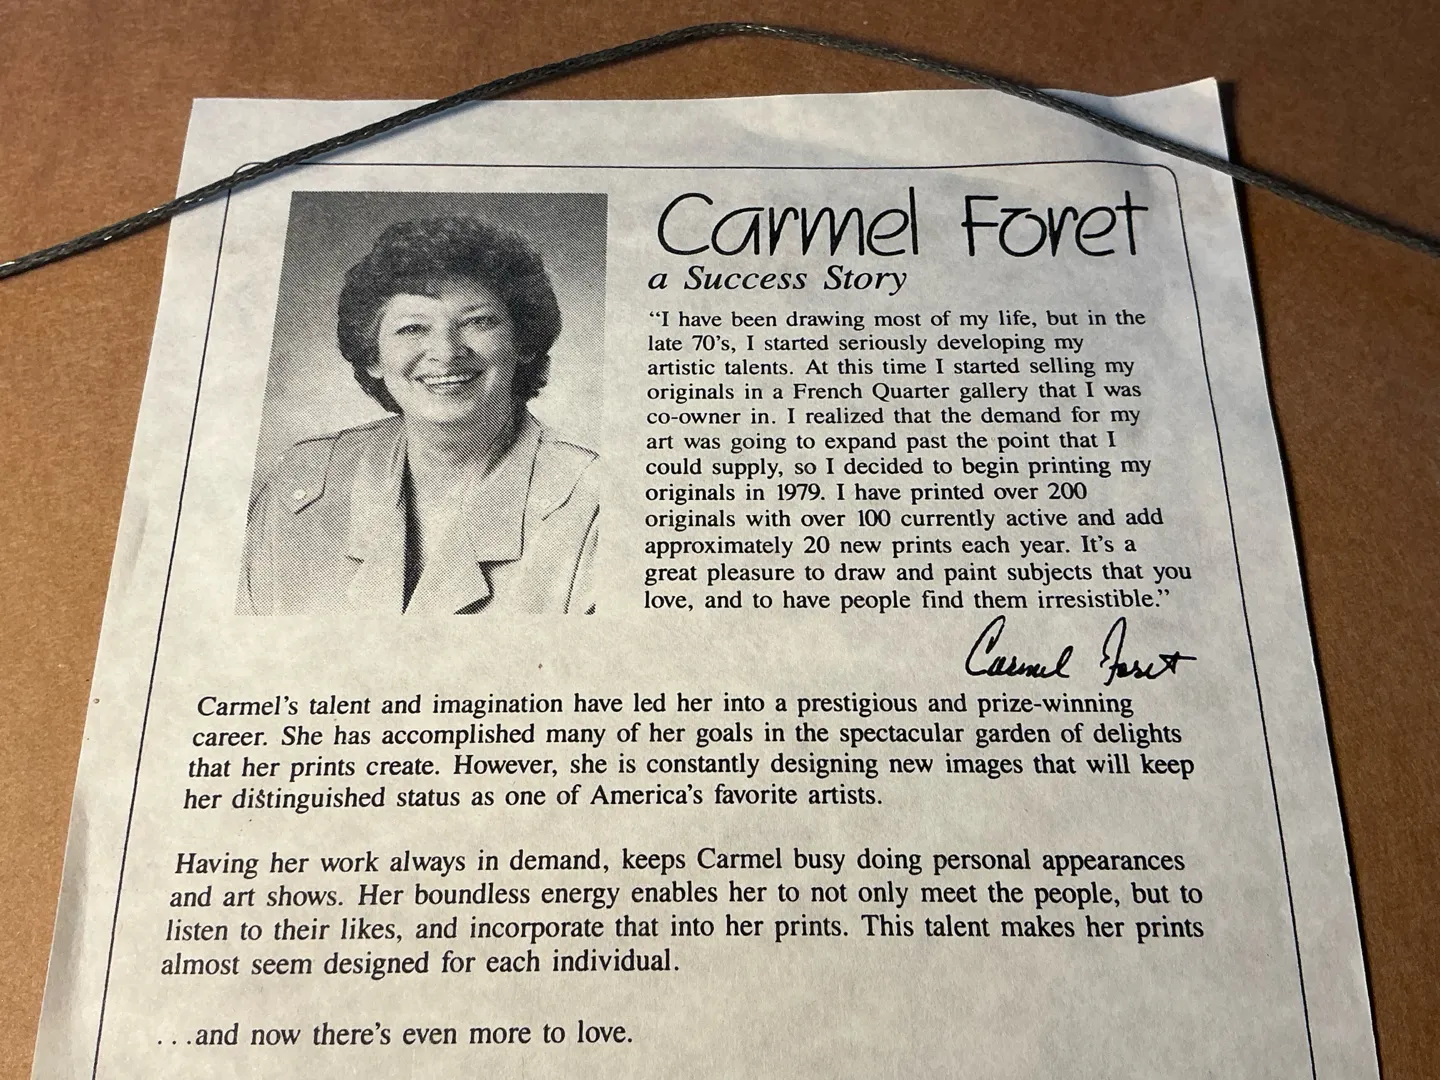 Carmel Foret
a Success Story
“I have been drawing most of my life, but in the
late 70’s, I started seriously developing my
artistic talents. At this time I started selling my
originals in a French Quarter gallery that I was
co-owner in. I realized that the demand for my
art was going to expand past the point that I
could supply, so I decided to begin printing my
originals in 1979. I have printed over 200
originals with over 100 currently active and add
approximately 20 new prints each year. It’s a
great pleasure to draw and paint subjects that you
love, and to have people find them irresistible.”
Carmel Foret
Carmel’s talent and imagination have led her into a prestigious and prize-winning
career. She has accomplished many of her goals in the spectacular garden of delights
that her prints create. However, she is constantly designing new images that will keep
her distinguished status as one of America’s favorite artists.
Having her work always in demand, keeps Carmel busy doing personal appearances
and art shows. Her boundless energy enables her to not only meet the people, but to
listen to their likes, and incorporate that into her prints. This talent makes her prints
almost seem designed for each individual.
...and now there’s even more to love.